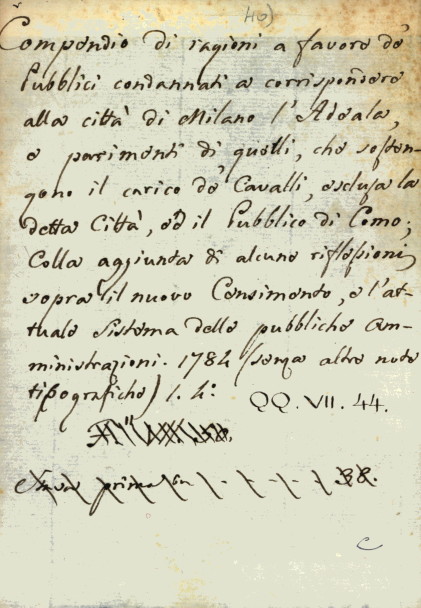 40)
Compendio di ragioni a favore de'
Pubblici condannati a corrispondere
alla città di Milano l'Adeale,
e parimenti di quelli, che sosten-
gono il carico de' Cavalli, esclusa la
detta Città, ed il Pubblico di Como;
Colla aggiunta di alcune riflessioni
sopra il nuovo Censimento, e l'at-
tuale Sistema delle pubbliche am-
ministrazioni. 1784 (senza altre note
tipografiche) l. 4:
QQ. VII. 44.
prima
38.
C